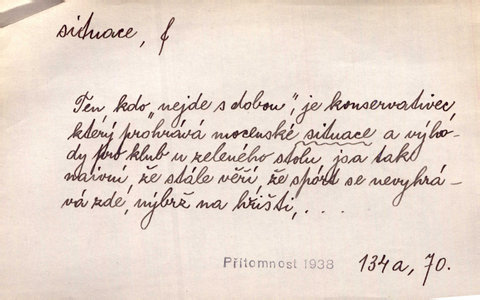 situace, f
Ten, kdo "nejde s dobou", je konservativec,
který prohrává mocenské situace a výho-
dy pro klub u zeleného stolu, jsa tak
naivní, že stále věří, že sport se nevyhrá-
vá zde, nýbrž na hřišti, ...
Přítomnost 1938 134a, 70.